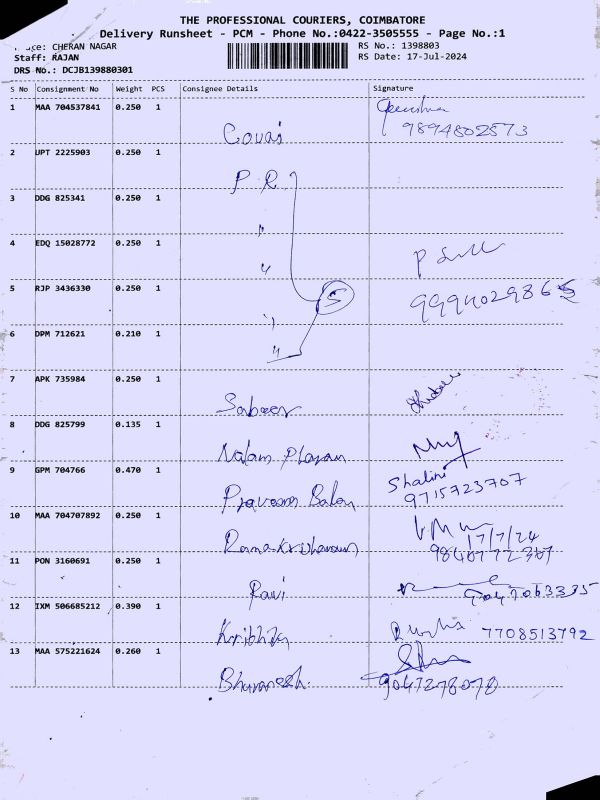 THE PROFESSIONAL COURIERS, COIMBATORE
Delivery Runsheet - PCM - Phone No.:0422-3505555 - Page No.:1
CHERAN NAGAR
RS No.: 1398803
Staff: RAJAN
RS Date: 17-Jul-2024
DRS No.: DCJB139880301
S No Consignment No Weight PCS Consignee Details Signature
1 MAA 704537841 0.250 1
Covai 9894802573
2 UPT 2225903 0.250 1
P R
3 DDG 825341 0.250 1
"
4 EDQ 15028772 0.250 1
"
5 RJP 3436330 0.250 1
" 5
6 DPM 712621 0.210 1
"
7 APK 735984 0.250 1
Sabeer
8 DDG 825799 0.135 1
9 GPM 704766 0.470 1
Shalini
9715723707
Praveen
10 MAA 704707892 0.250 1
17/7/24
11 PON 3160691 0.250 1
Ravi
12 IXM 506685212 0.390 1
7708513792
13 MAA 575221624 0.260 1
Bhuvanesh. 9047278078